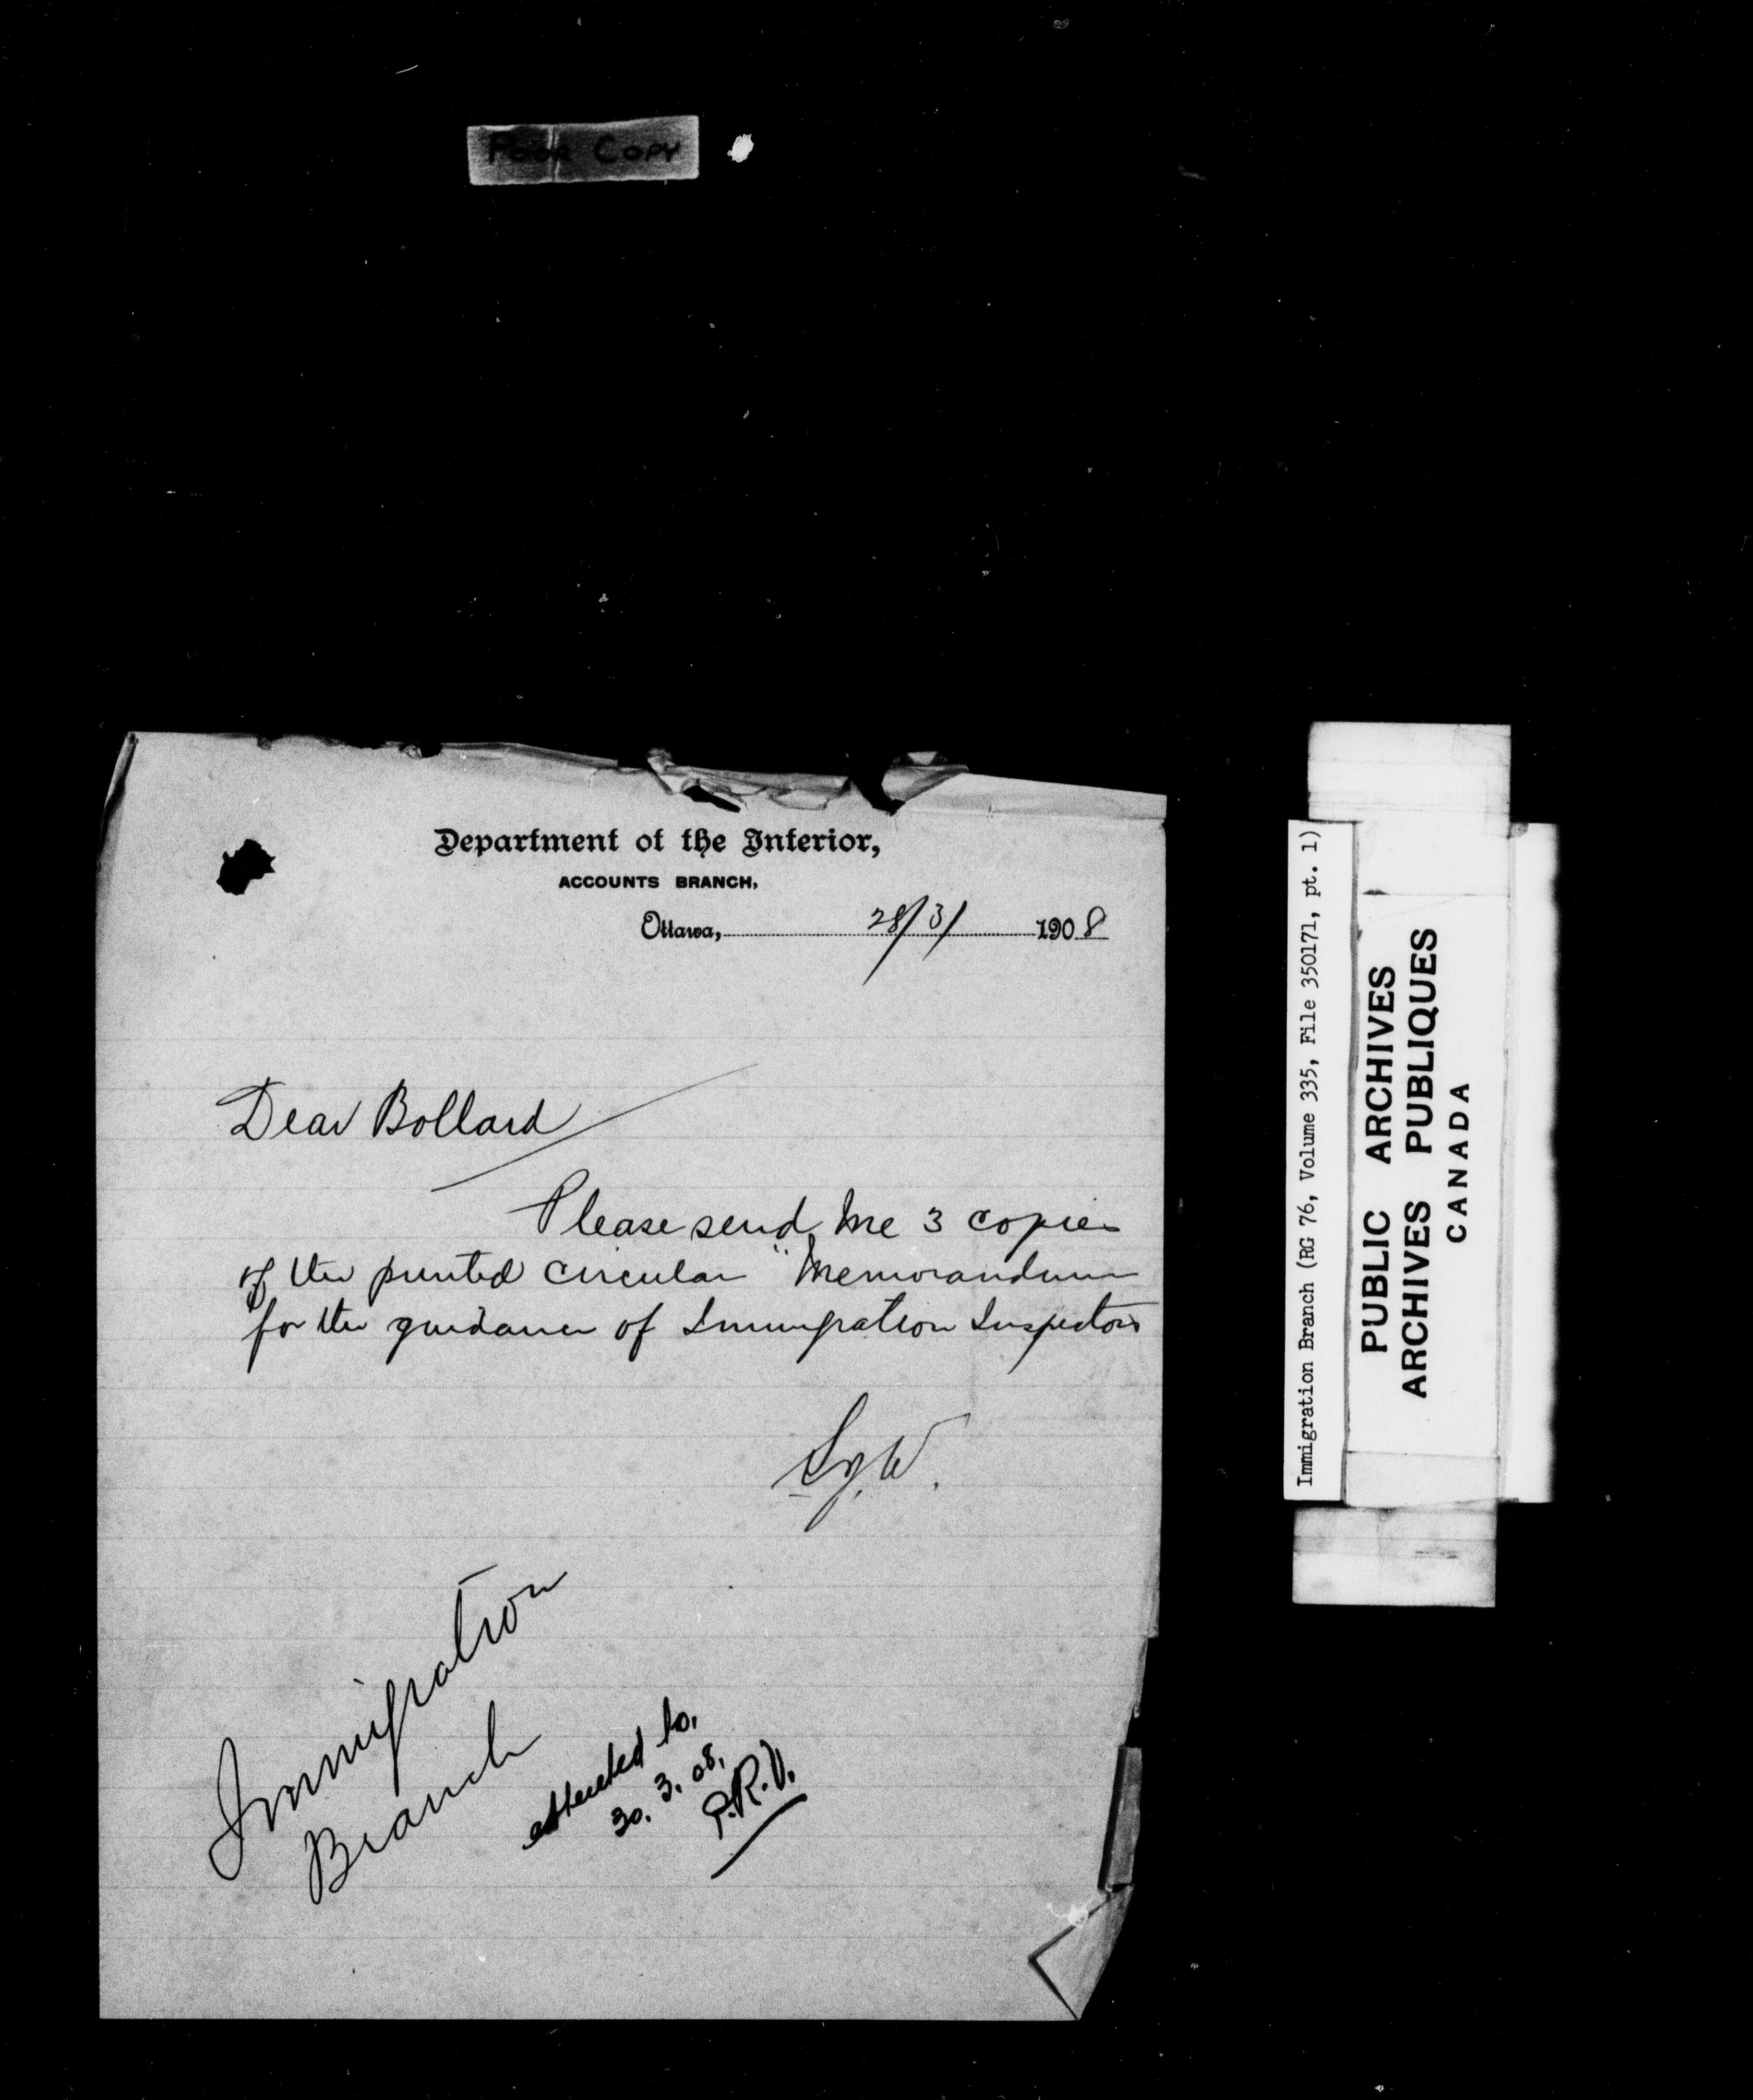 Poor Copy
Department of the Interior,
ACCOUNTS BRANCH,
Ottawa, 28/3/ 1908
Dear Bollard
Please send me 3 copies
of the printed circular "Memorandum
for the guidance of Immigration Inspectors
Immigration
Branch
attended to.
30. 3. 08.
Immigration Branch (RG 76, Volume 335, File 350171, pt. 1)
PUBLIC ARCHIVES
ARCHIVES PUBLIQUES
CANADA